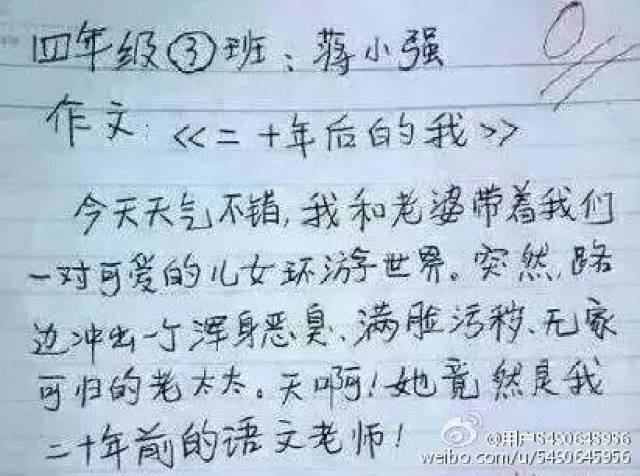 四年级③班:蒋小强
0
作文:《二十年后的我》
今天天气不错,我和老婆带着我们
一对可爱的儿女环游世界。突然,路
边冲出一个浑身恶臭、满脸污秽、无家
可归的老太太。天啊!她竟然是我
二十年前的语文老师!
@用户5490645956
weibo.com/u/5490645956